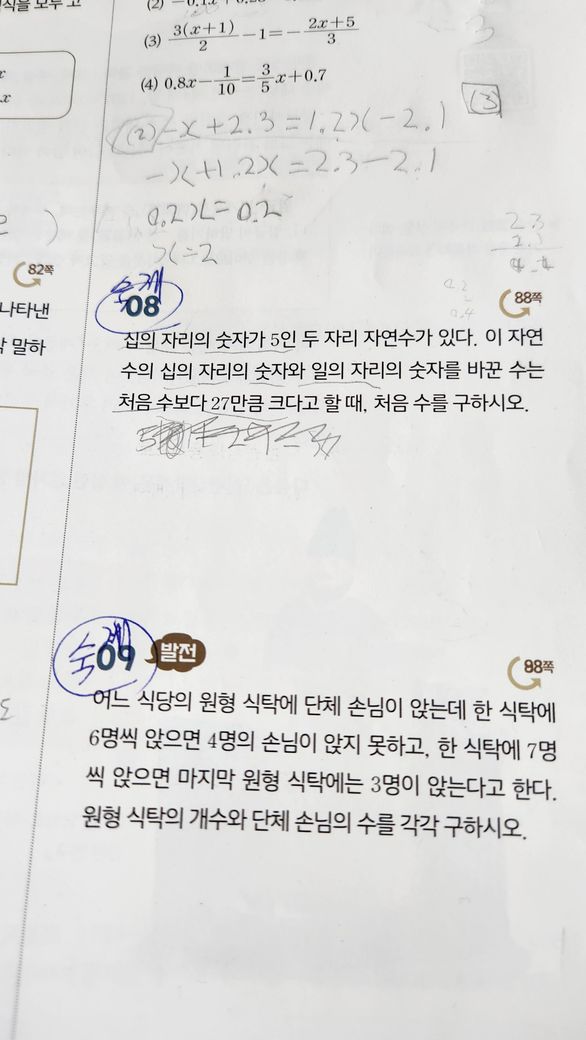 (3) 3(x+1)/2 -1=- 2x+5/3
(4) 0.8x- 1/10 = 3/5 x+0.7
(3)
(2) -x+2.3=1.2x-2.1
-x+1.2x=2.3-2.1
0.2x=0.2
82쪽
숙제
08
88쪽
나타낸
십의 자리의 숫자가 5인 두 자리 자연수가 있다. 이 자연
말하
수의 십의 자리의 숫자와 일의 자리의 숫자를 바꾼 수는
처음 수보다 27만큼 크다고 할 때, 처음 수를 구하시오.
숙제
09 발전
88쪽
어느 식당의 원형 식탁에 단체 손님이 앉는데 한 식탁에
6명씩 앉으면 4명의 손님이 앉지 못하고, 한 식탁에 7명
씩 앉으면 마지막 원형 식탁에는 3명이 앉는다고 한다.
원형 식탁의 개수와 단체 손님의 수를 각각 구하시오.